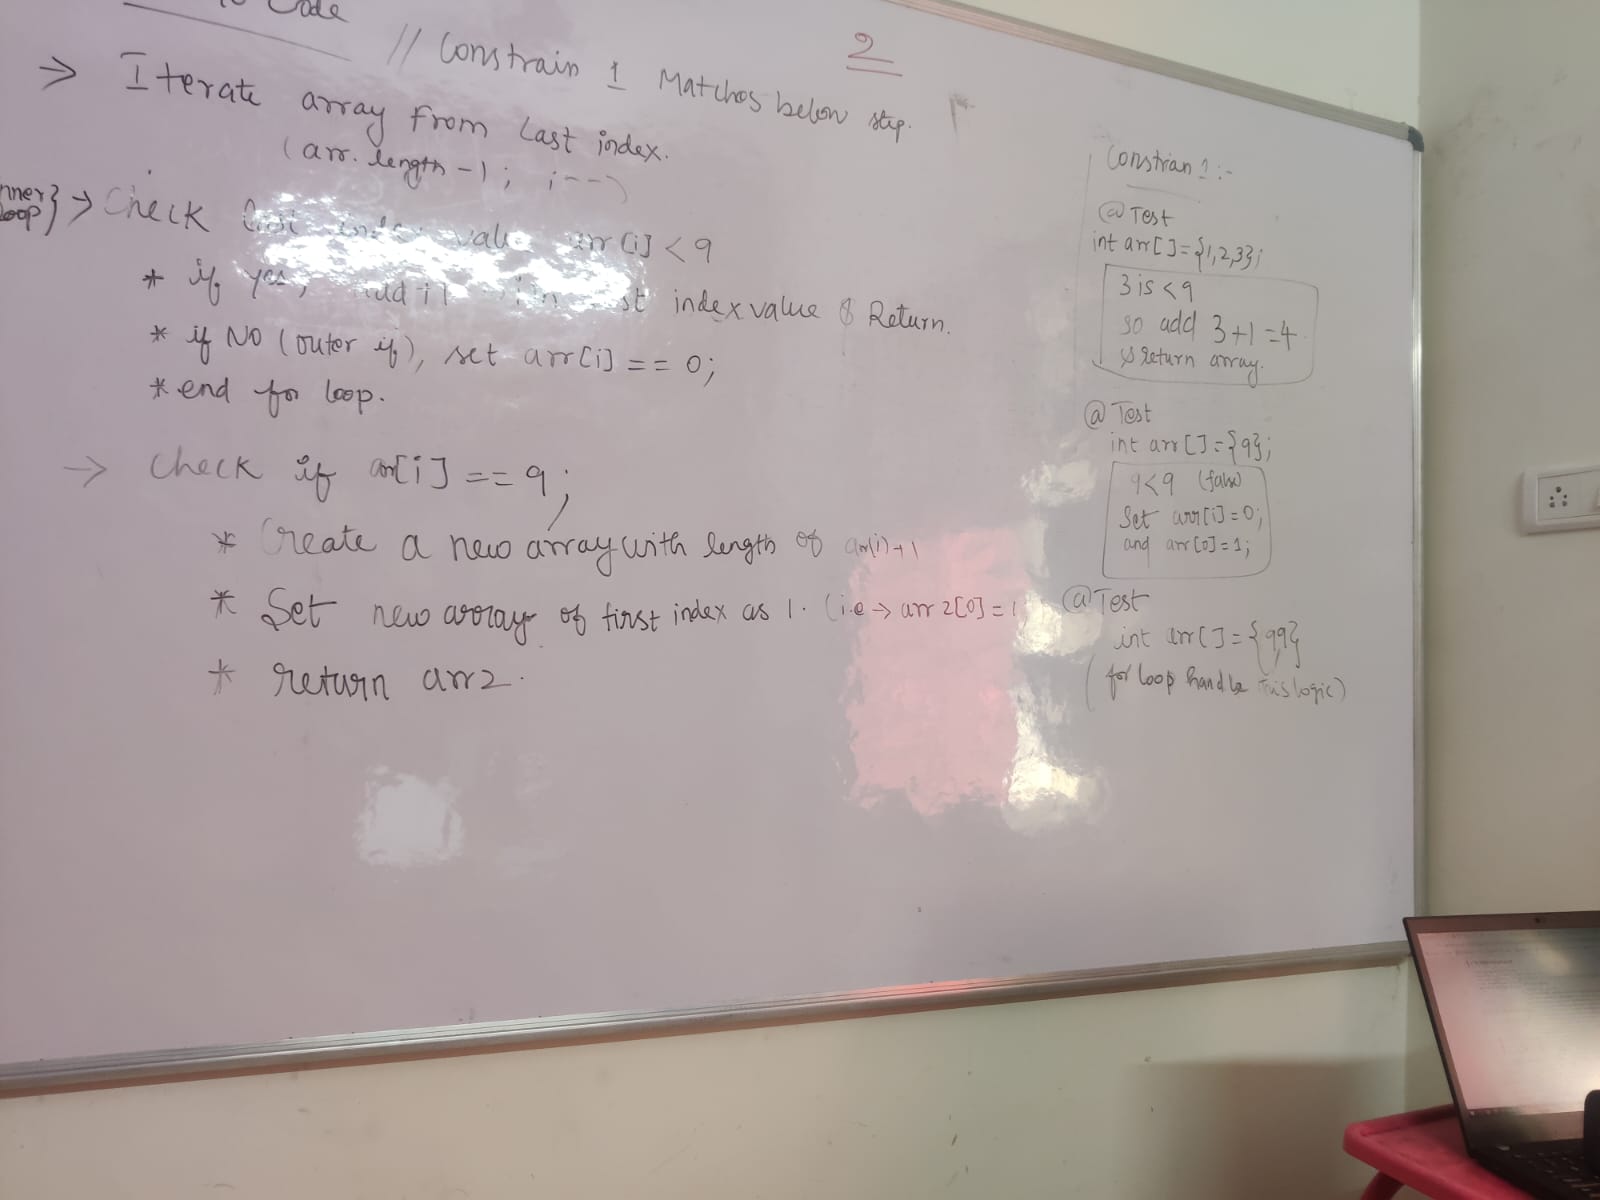 Code
2
// Constrain 1 Matches below step.
→ Iterate array from last index.
(arr.length-1; i--)
nner} → Check last index value arr[i] < 9
loop}
* if yes, add 1 index value & Return.
* if NO (outer if), set arr[i] == 0;
* end for loop.
→ check if arr[i] == 9;
* Create a new array with length of arr(i)+1
* Set new array of first index as 1. (i.e → arr2[0] = 1
* return arr2.
Constrian 1:-
@Test
int arr[]={1,2,3};
3 is < 9
so add 3+1=4
& return array.
@Test
int arr[]={9};
9<9 (false)
Set arr[i]=0;
and arr[0]=1;
@Test
int arr[]={9,9}
(for loop handle this logic)